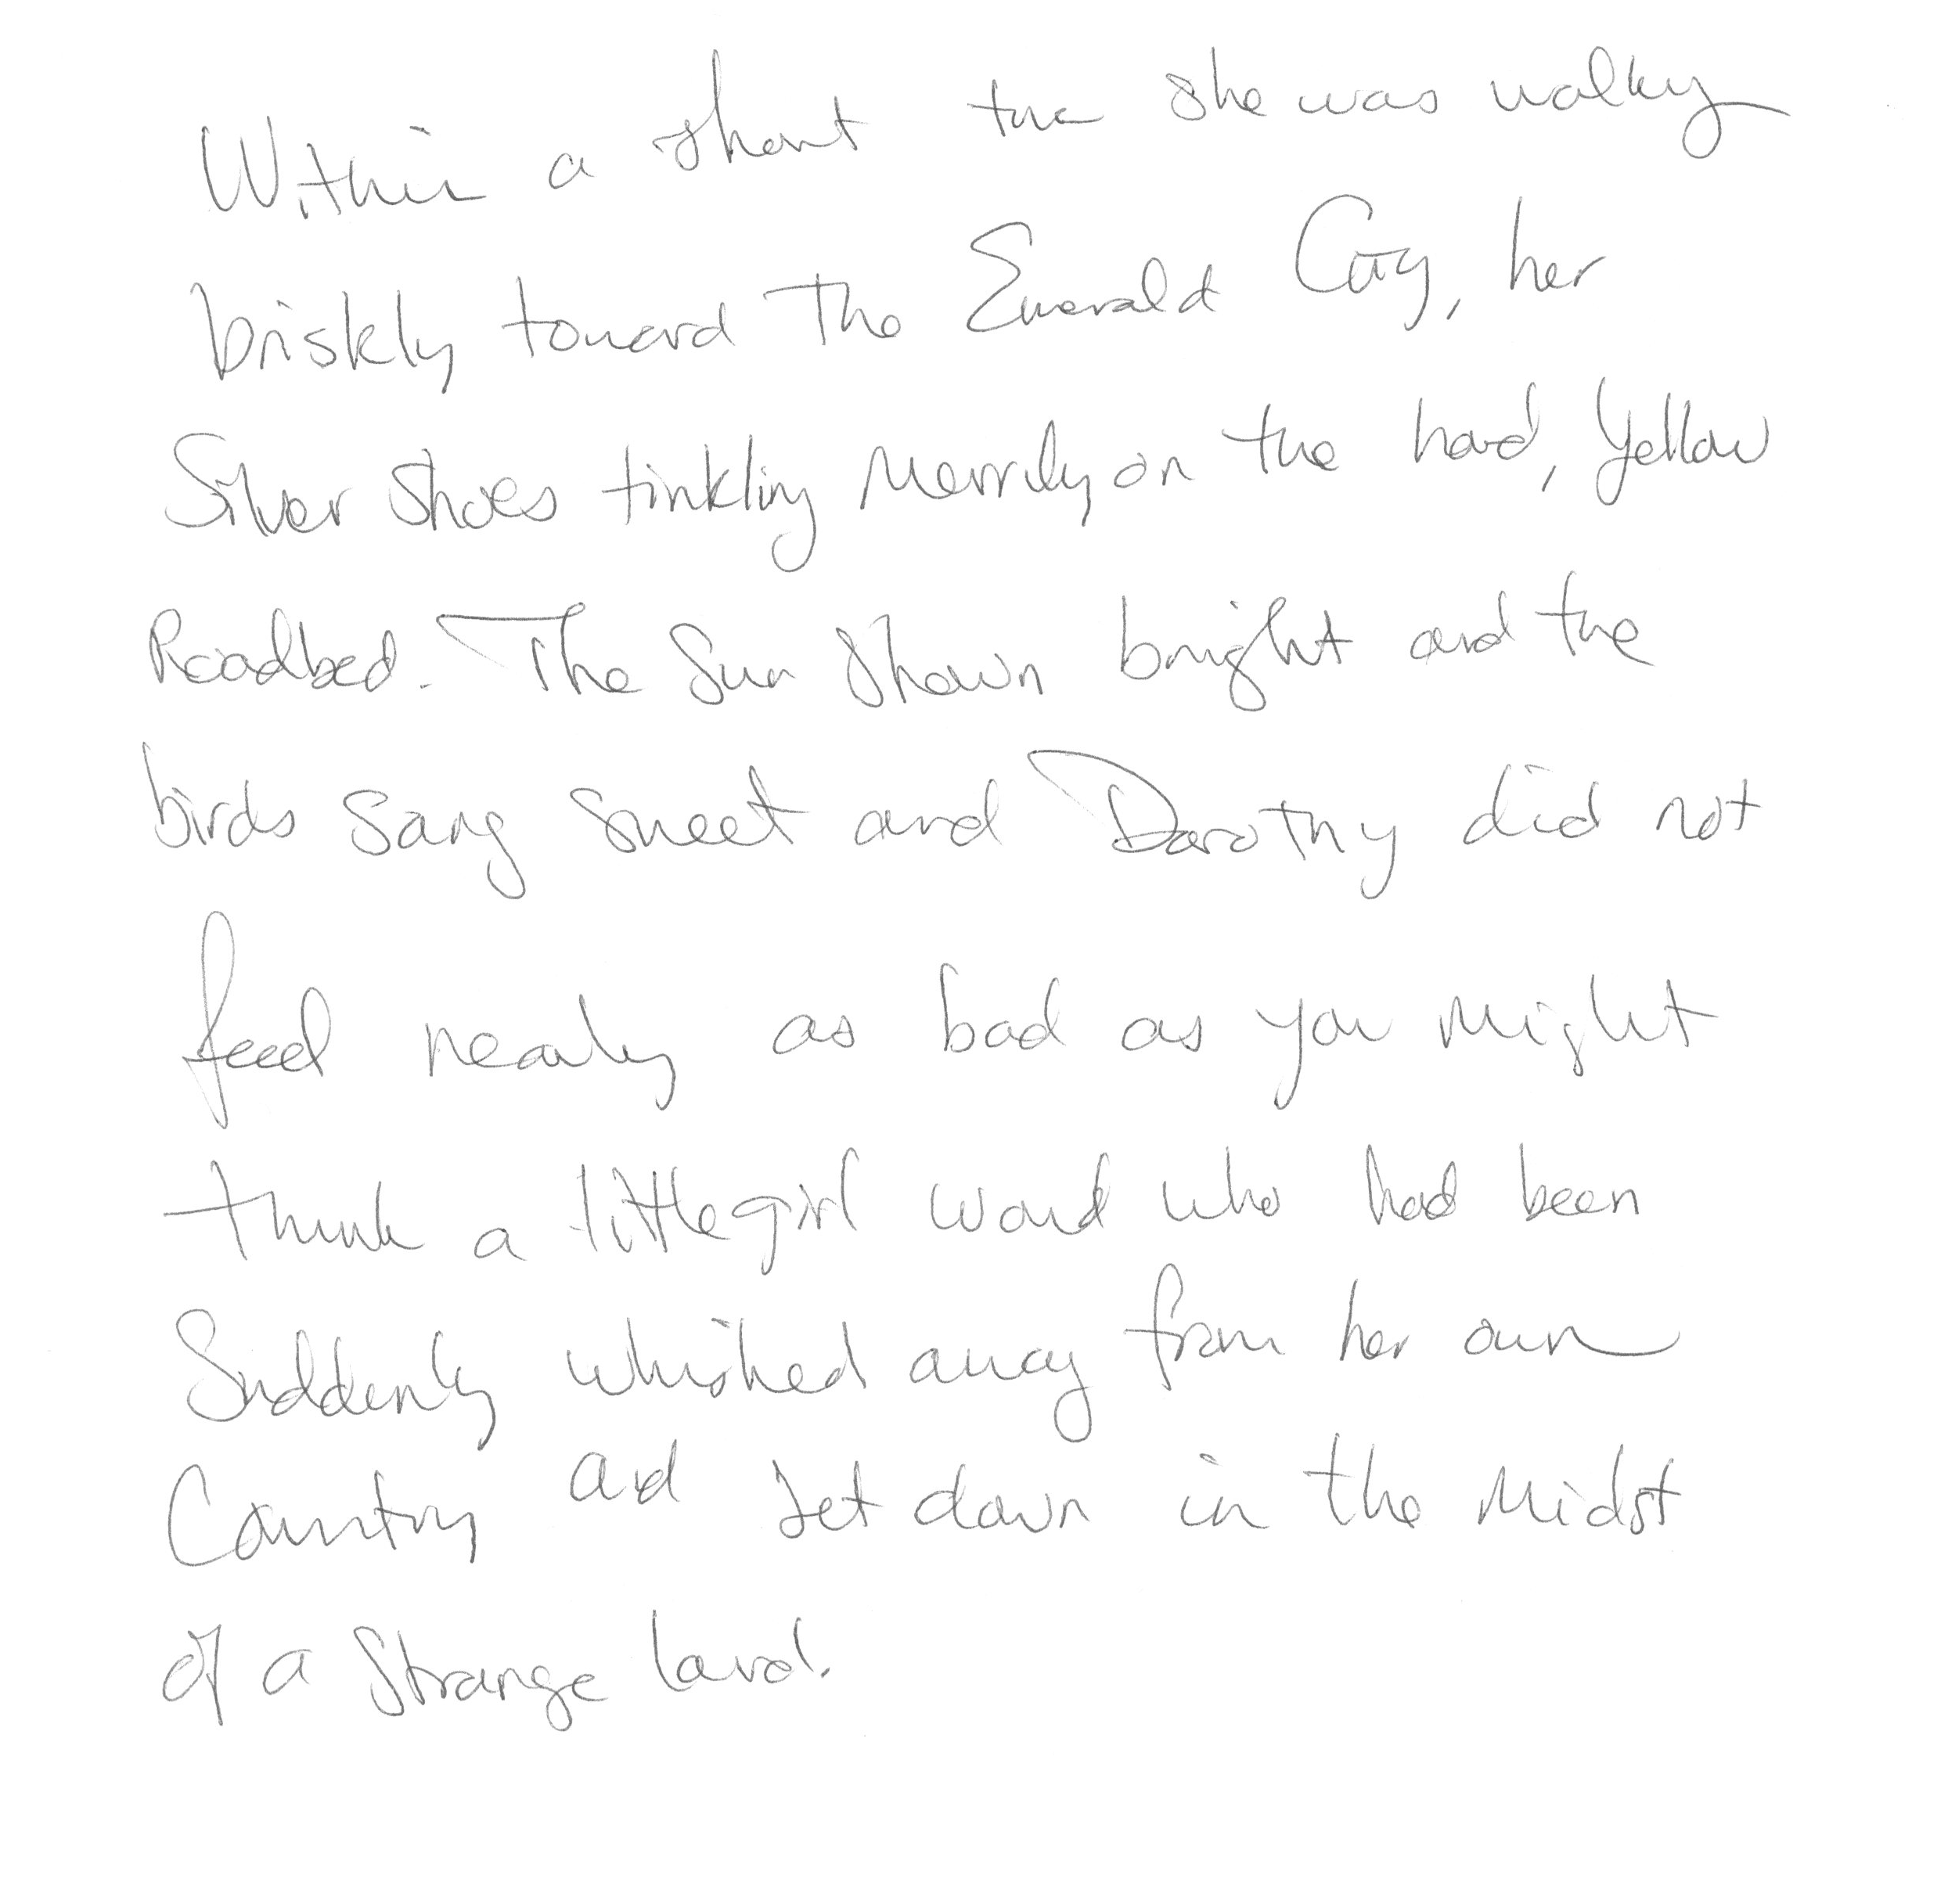 Within a short time she was walking
briskly toward The Emerald City, her
Silver Shoes tinkling Merrily on the hard, yellow
Roadbed. The Sun Shown bright and the
birds Sang Sweet and Dorothy did not
feel nearly as bad as you Might
think a little girl would who had been
Suddenly whisked away from her own
Country and Set down in the Midst
of a Strange land.